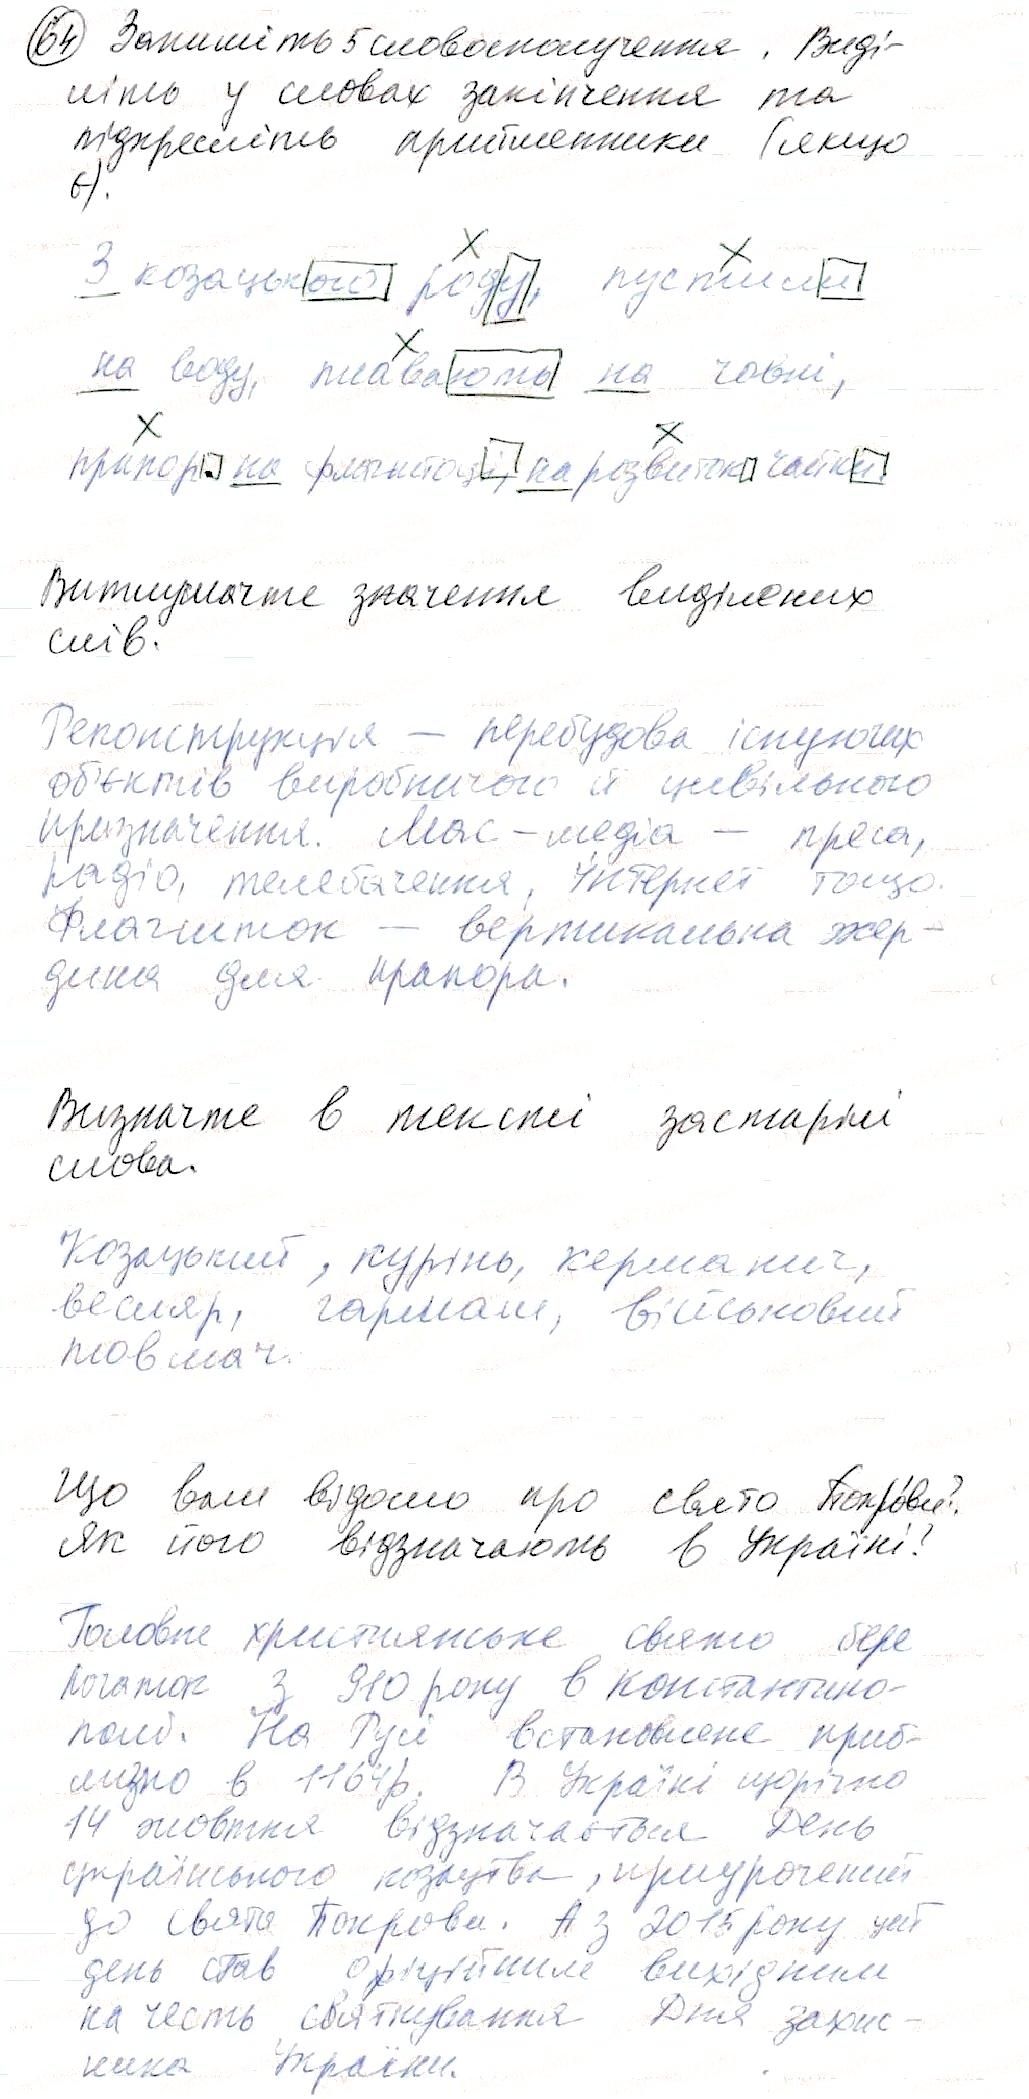 64 Запишіть 5 словосполучення. Виді-
літь у словах закінчення та
підкресліть прийменники (якщо
є).
З козацького роду, пустили
на воду, плавають на човні,
прапор на флагштоці, на розвиток чайки.
Витлумачте значення виділених
слів.
Реконструкція — перебудова існуючих
об'єктів виробничого й цивільного
призначення. Мас-медіа — преса,
радіо, телебачення, Інтернет тощо.
Флагшток — вертикальна жер-
дина для прапора.
Визначте в тексті застарілі
слова.
Козацький, курінь, керманич,
весляр, гармаш, військовий
товмач.
Що вам відомо про свято Покрови?
Як його відзначають в Україні?
Головне християнське свято бере
початок з 910 року в Константино-
полі. На Русі встановлене приб-
лизно в 1164р. В Україні щорічно
14 жовтня відзначається День
українського козацтва, приурочений
до свята Покрова. А з 2015 року цей
день став офіційним вихідним
на честь святкування Дня захис-
ника України.